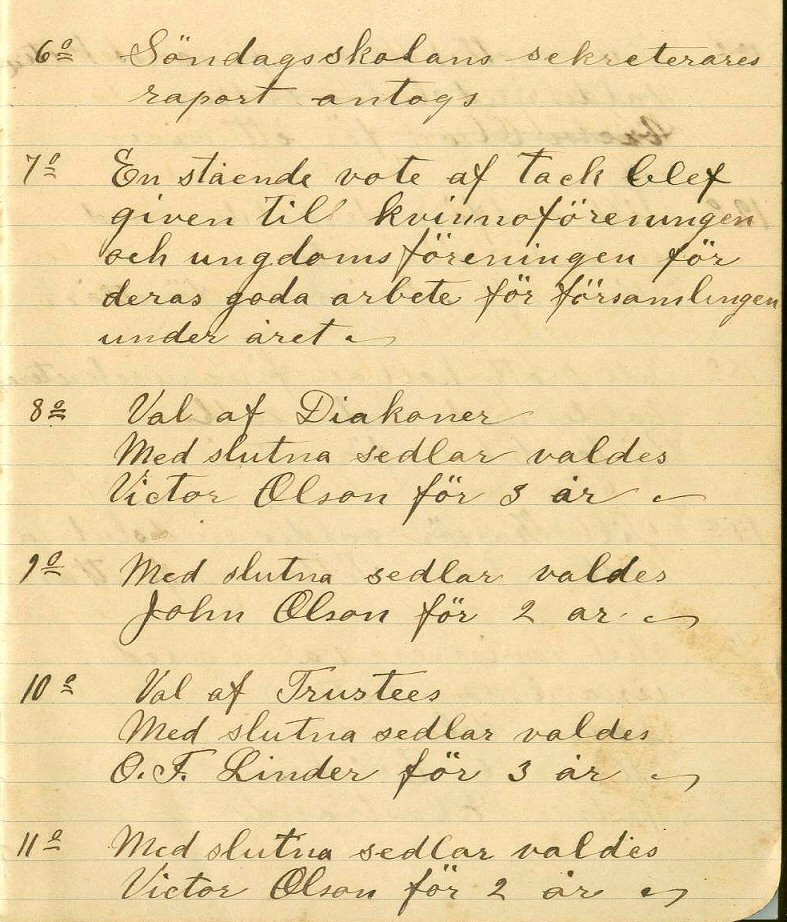 6º Söndagsskolans sekreterares
raport antogs
7º En stående vote af tack blef
given till kvinnoföreningen
och ungdomsföreningen för
deras goda arbete för församlingen
under året
8º Val af Diakoner
Med slutna sedlar valdes
Victor Olson för 3 år
9º Med slutna sedlar valdes
John Olson för 2 ar.
10º Val af Trustees
Med slutna sedlar valdes
O. F. Linder för 3 år
11º Med slutna sedlar valdes
Victor Olson för 2 år